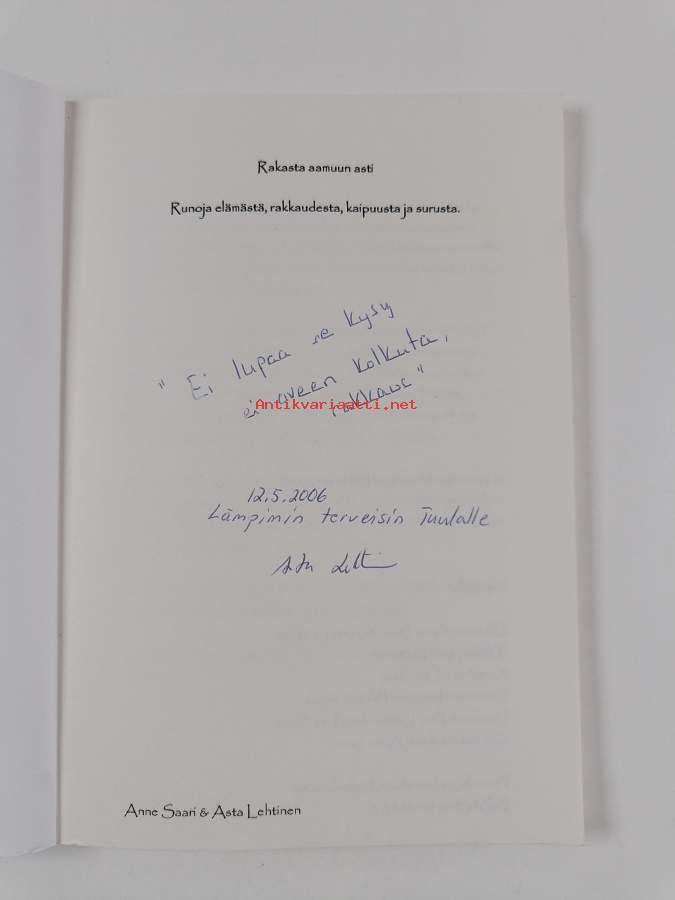 Rakasta aamuun asti
Runoja elämästä, rakkaudesta, kaipuusta ja surusta.
" Ei lupaa se kysy
ei oveen kolkuta,
Antikvariaatti.net
rakkaus "
12.5.2006
Lämpimin terveisin Tuulalle
Anne Saari & Asta Lehtinen